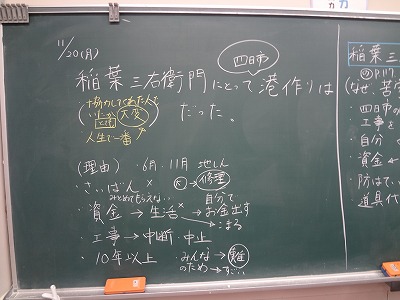 11/20(月)
四日市
稲葉三右衛門にとって港作りは
・協力してくれた人も
大変
人生で一番
だった。
(理由)・6月、11月 地しん
→修理
・さいばん×
みとめてもらえない…
・資金→生活×→自分でお金出す
→こまる
・工事→中断・中止
・10年以上
・みんなのため→難
→すごい
稲葉三
(なぜ、苦
・四日市の
工事を
・自分
・資金
・防はてい
道具代